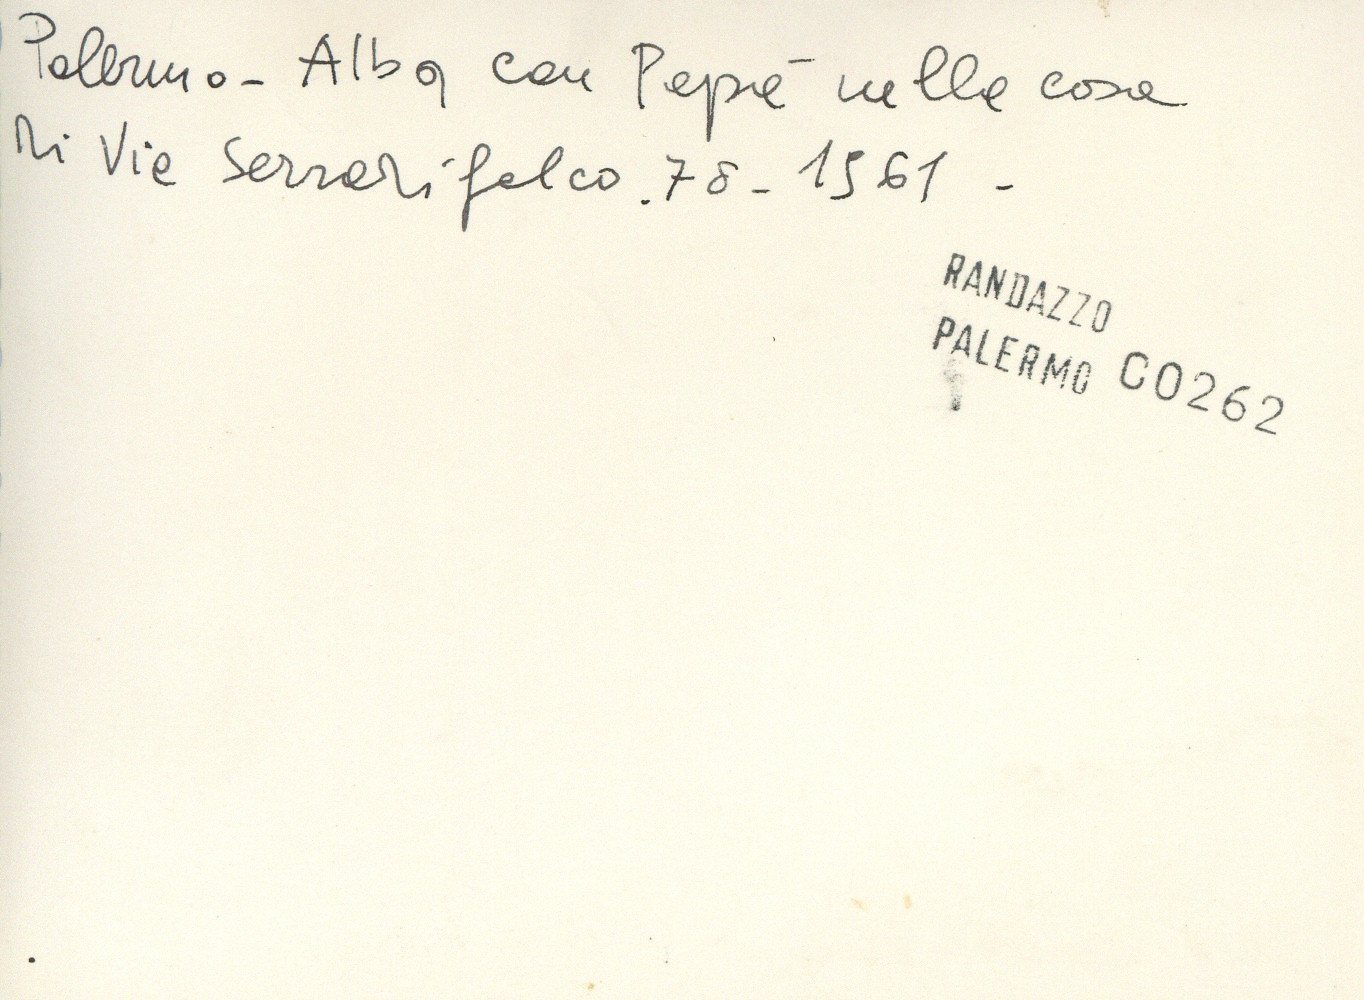 Palermo - Alba con Pepè nella casa
di Via Serradifalco. 78 - 1961 -
RANDAZZO
PALERMO CO262